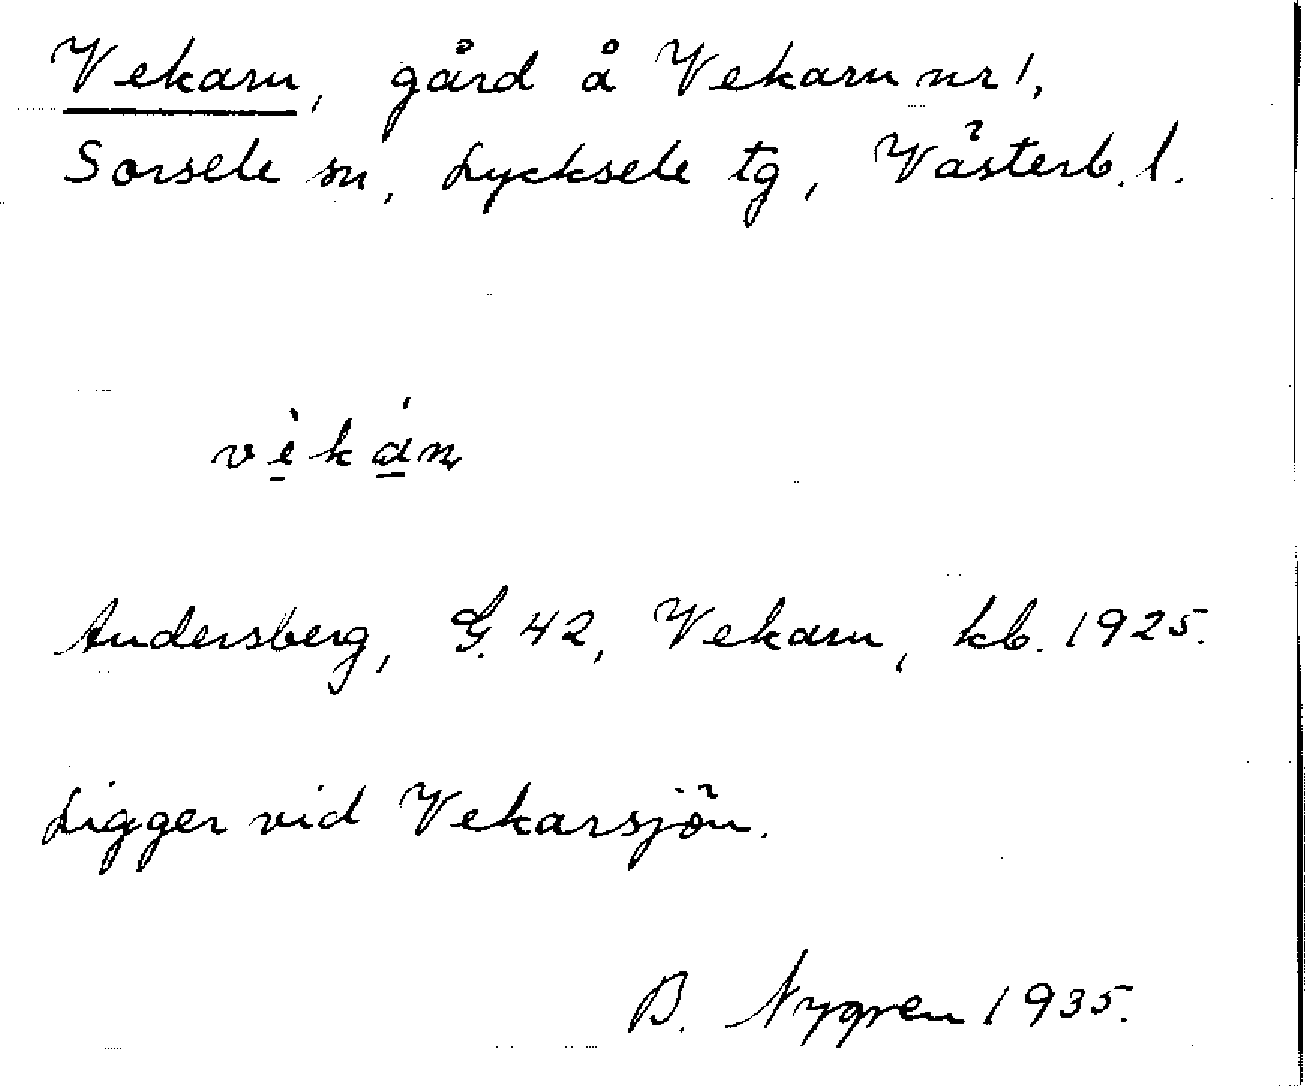 Vekarn, gård å Vekarn nr 1,
Sorsele sn, Lycksele tg, Västerb. l.
vìkán
Andersberg, G. 42, Vekarn, kb. 1925.
Ligger vid Vekarsjön.
B. Nygren 1935.